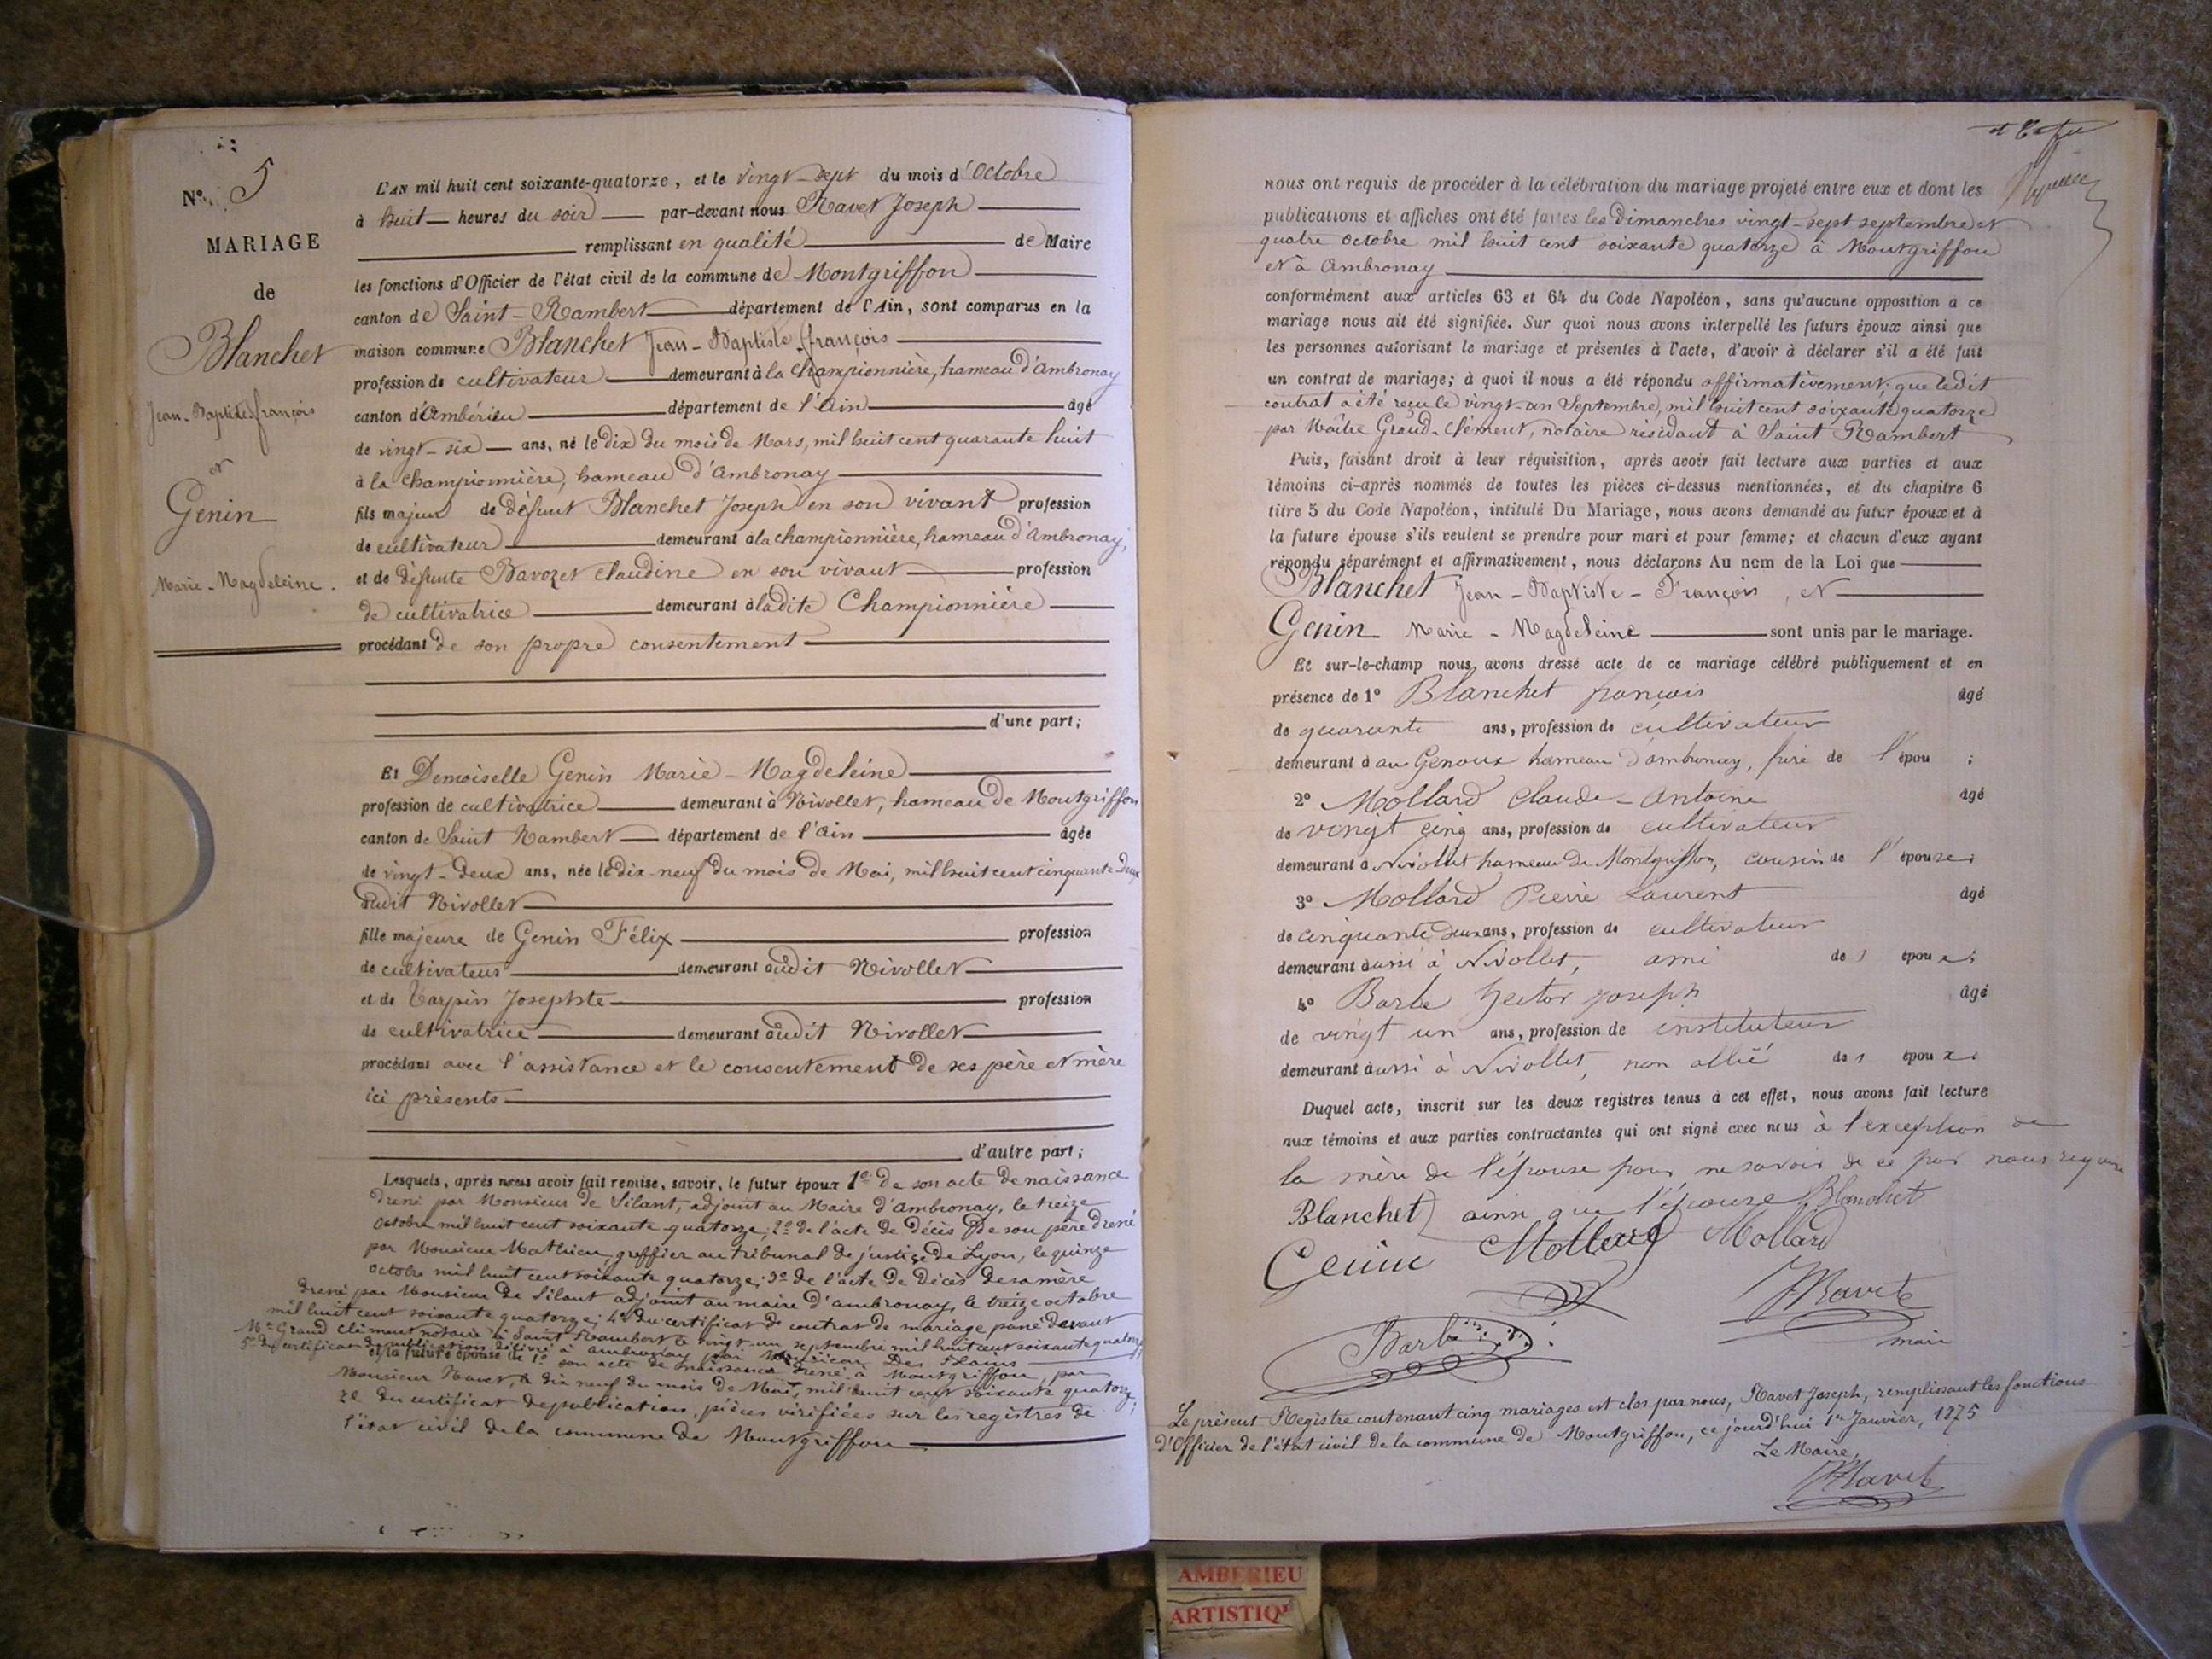 N° 5
MARIAGE
de
Blanchet
Jean-Baptiste françois
et
Genin
Marie-Magdeleine.
L'AN mil huit cent soixante-quatorze, et le vingt-sept du mois d'Octobre
à huit heures du soir par-devant nous Ravet Joseph
remplissant en qualité de Maire
les fonctions d'Officier de l'état civil de la commune de Montgriffon
canton de Saint-Rambert département de l'Ain, sont comparus en la
maison commune Blanchet Jean-Baptiste-françois
profession de cultivateur demeurant à la Championnière, hameau d'Ambronay
canton d'Ambérieu département de l'Ain âgé
de vingt-six ans, né le dix du mois de Mars, mil huit cent quarante huit
à la Championnière, hameau d'Ambronay
fils majeur de défunt Blanchet Joseph en son vivant profession
de cultivateur demeurant à la championnière, hameau d'Ambronay,
et de défunte Bavozet Claudine en son vivant profession
de cultivatrice demeurant à ladite Championnière
procédant de son propre consentement
d'une part;
Et Demoiselle Genin Marie-Magdeleine
profession de cultivatrice demeurant à Nivollet, hameau de Montgriffon
canton de Saint Rambert département de l'Ain âgée
de vingt-deux ans, née le dix-neuf du mois de Mai, mil huit cent cinquante deux
audit Nivollet
fille majeure de Genin Félix profession
de cultivateur demeurant audit Nivollet
et de Tarpin Josephte profession
de cultivatrice demeurant audit Nivollet
procédant avec l'assistance et le consentement de ses père et mère
ici présents
d'autre part;
Lesquels, après nous avoir fait remise, savoir, le futur époux 1° de son acte de naissance
dressé par Monsieur de Silant, adjoint au Maire d'Ambronay, le treize
octobre mil huit cent soixante-quatorze; 2° de l'acte de décès de son père dressé
par Monsieur Mathieu, greffier au tribunal de justice de Lyon, le quinze
octobre mil huit cent soixante quatorze; 3° de l'acte de décès de sa mère
dressé par Monsieur de Silant adjoint au maire d'ambronay, le treize octobre
mil huit cent soixante quatorze; 4° du certificat de contrat de mariage passé devant
Me Grand Clément notaire à Saint Rambert le vingt-un septembre mil huit cent soixante quatorze
5° du certificat de publication délivré à Ambronay par Monsieur Des
et la future épouse de 1° son acte de naissance dressé à Montgriffon, par
Monsieur Ravet, le dix neuf du mois de Mai, mil huit cent soixante quatorze;
2° du certificat de publication, pièces vérifiées sur les registres de
l'état civil de la commune de Montgriffon
nous ont requis de procéder à la célébration du mariage projeté entre eux et dont les
publications et affiches ont été faites les Dimanches vingt-sept septembre et
quatre octobre mil huit cent soixante quatorze à Montgriffon
et à Ambronay
conformément aux articles 63 et 64 du Code Napoléon, sans qu'aucune opposition a ce
mariage nous ait été signifiée. Sur quoi nous avons interpellé les futurs époux ainsi que
les personnes autorisant le mariage et présentes à l'acte, d'avoir à déclarer s'il a été fait
un contrat de mariage; à quoi il nous a été répondu affirmativement; que ledit
contrat a été reçu le vingt-un Septembre, mil huit cent soixante quatorze
par Maître Grand-Clément, notaire résidant à Saint Rambert
Puis, faisant droit à leur réquisition, après avoir fait lecture aux parties et aux
témoins ci-après nommés de toutes les pièces ci-dessus mentionnées, et du chapitre 6
titre 5 du Code Napoléon, intitulé Du Mariage, nous avons demandé au futur époux et à
la future épouse s'ils veulent se prendre pour mari et pour femme; et chacun d'eux ayant
répondu séparément et affirmativement, nous déclarons Au nom de la Loi que
Blanchet Jean-Baptiste-François, et
Genin Marie-Magdeleine sont unis par le mariage.
Et sur-le-champ nous avons dressé acte de ce mariage célébré publiquement et en
présence de 1° Blanchet françois âgé
de quarante ans, profession de cultivateur
demeurant à au Genoux hameau d'ambronay, frère de l'épou ;
2° Mollard Claude-Antoine âgé
de vingt cinq ans, profession de cultivateur
demeurant à Nivollet hameau de Montgriffon, cousin de l'épouse;
3° Mollard Pierre Laurent âgé
de cinquante deux ans, profession de cultivateur
demeurant aussi à Nivollet, ami des époux;
4° Barbe Hector Joseph âgé
de vingt un ans, profession de instituteur
demeurant aussi à Nivollet, non allié des époux;
Duquel acte, inscrit sur les deux registres tenus à cet effet, nous avons fait lecture
aux témoins et aux parties contractantes qui ont signé avec nous à l'exception de
la mère de l'épouse pour ne savoir de ce par nous requise
Blanchet ainsi que l'épouse Blanchet
Genin Mollard Mollard
JRavet
Barbe
maire
Le présent Registre contenant cinq mariages est clos par nous, Ravet Joseph, remplissant les fonctions
d'Officier de l'état civil de la commune de Montgriffon, ce jourd'hui 1er Janvier, 1875
Le Maire,
JRavet
AMBERIEU
ARTISTIQ